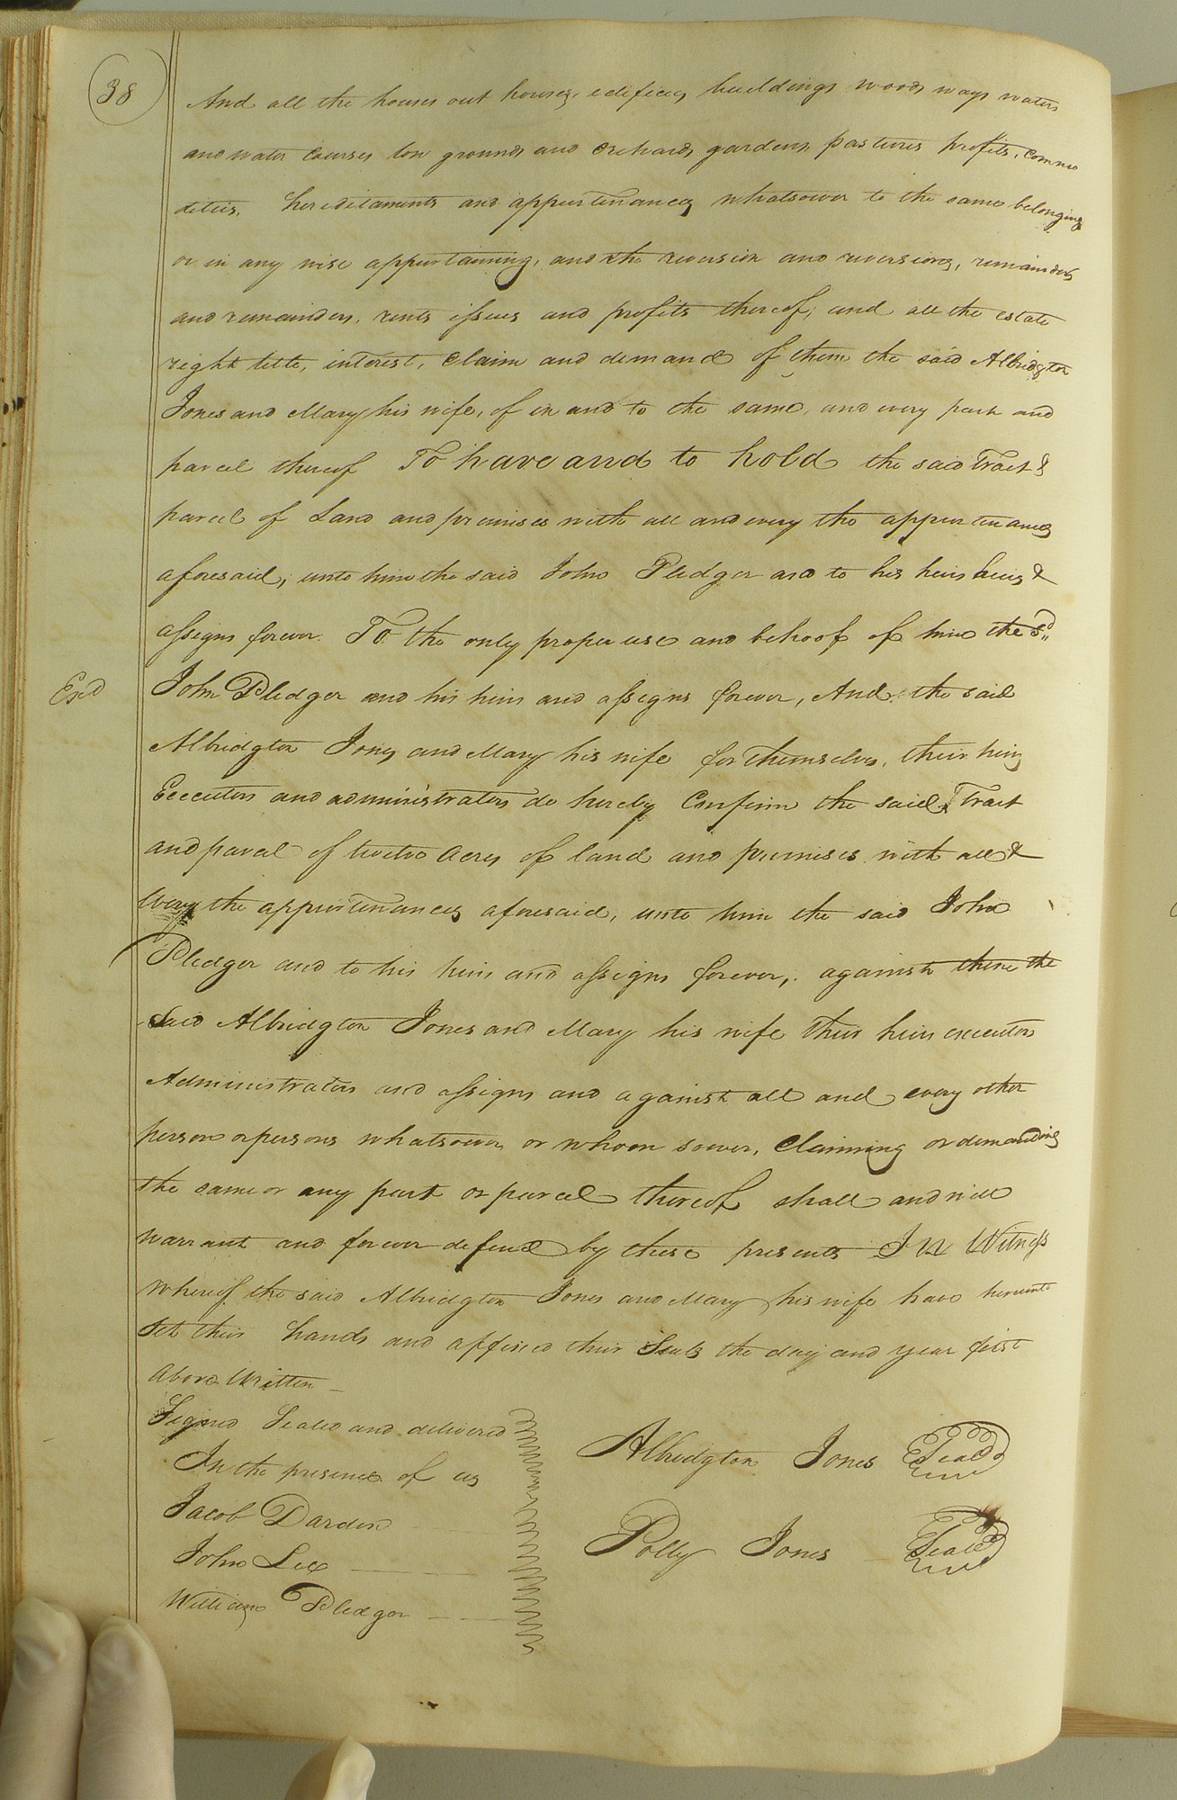 38
And all the houses out houses, edifices, buildings woods ways waters
and water courses low grounds and Orchards, gardens, pastures profits, commo
dities, hereditaments and appurtenances whatsoever to the same belonging
or in any wise appurtaining, and the reversion and reversions, remainder
and remainders, rents issues and profits thereof, and all the estate
right title, interest, Claim and demand of them the said Albridgton
Jones and Mary his wife, of in and to the same, and every part and
parcel thereof To have and to hold the said Tract &
parcel of Land and premises with all and every the appurtenances
aforesaid, unto him the said John Pledger and to his heirs heirs &
assigns forever. To the only proper use and behoof of him the sd
Exd
John Pledger and his heirs and assigns forever, And the said
Albridgton Jones and Mary his wife for themselves, their heirs
Executors and administrators do hereby Confirm the said Tract
and parcel of twelve Acres of land and premises with all &
every the appurtenances aforesaid, unto him the said John
Pledger and to his heirs and assigns forever, against them the
said Albridgton Jones and Mary his wife their heirs executors
Administrators and assigns and against all and every other
person or persons whatsoever or whom soever, Claiming or demanding
the same or any part or parcel thereof shall and will
warrant and forever defend by these presents In Witness
Whereof the said Albridgton Jones and Mary his wife have hereunto
Set their hands and affixed their Seals the day and year first
Above Written
Signed Sealed and delivered
In the presence of us
Jacob Darden
John Lee
William Pledger
Albridgton Jones Seal
Polly Jones Seal